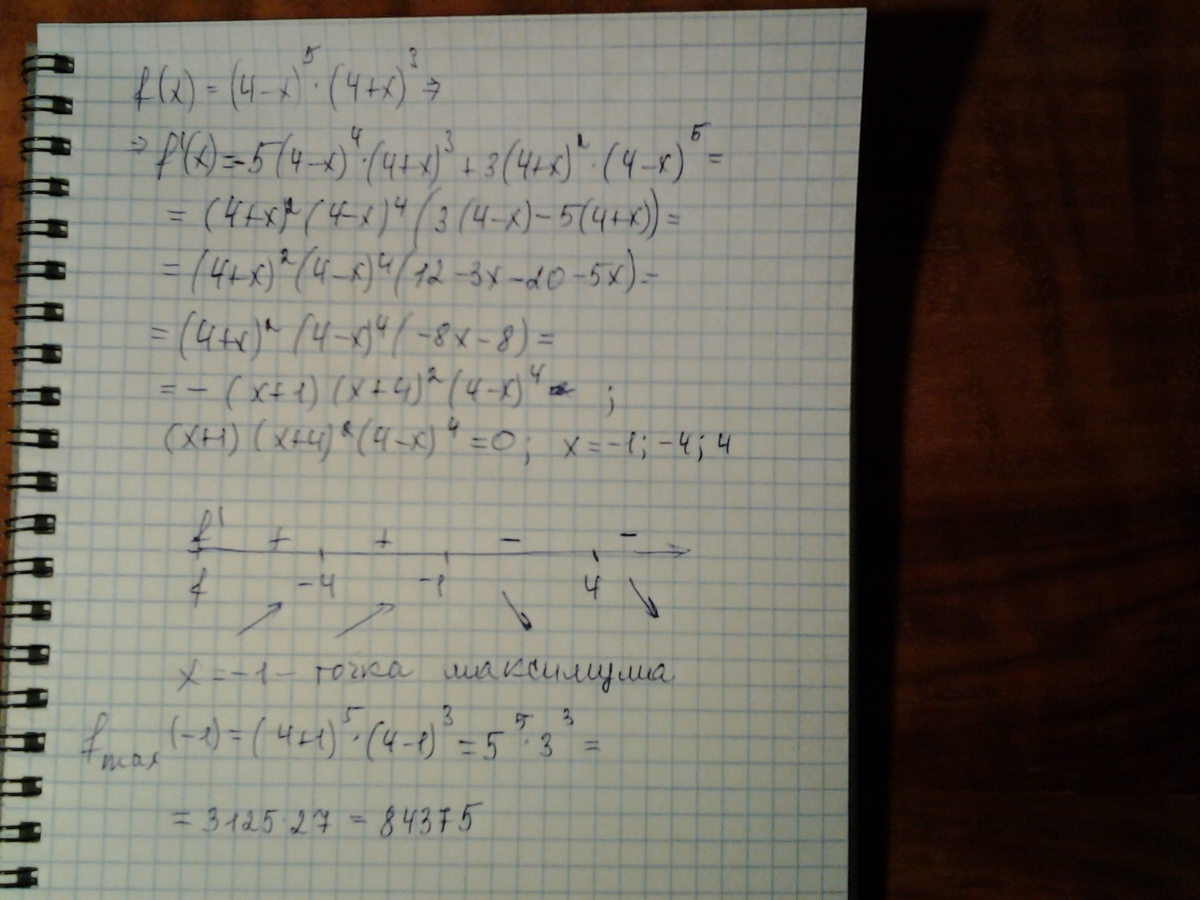 f(x) = (4-x)^5 · (4+x)^3 ⇒
⇒ f'(x) = -5(4-x)^4 · (4+x)^3 + 3(4+x)^2 · (4-x)^5 =
= (4+x)^2 (4-x)^4 (3(4-x) - 5(4+x)) =
= (4+x)^2 (4-x)^4 (12 - 3x - 20 - 5x) =
= (4+x)^2 (4-x)^4 (-8x - 8) =
= - (x+1) (x+4)^2 (4-x)^4 ;
(x+1) (x+4)^2 (4-x)^4 = 0; x = -1; -4; 4
f' + + - -
f -4 -1 4
↗ ↗ ↘ ↘
x = -1 - точка максимума
f max (-1) = (4+1)^5 · (4-1)^3 = 5^5 · 3^3 =
= 3125·27 = 84375